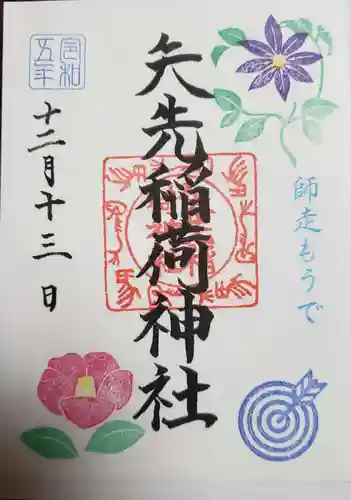 令和
五年
十二月十三日
矢先稲荷神社
師走もうで